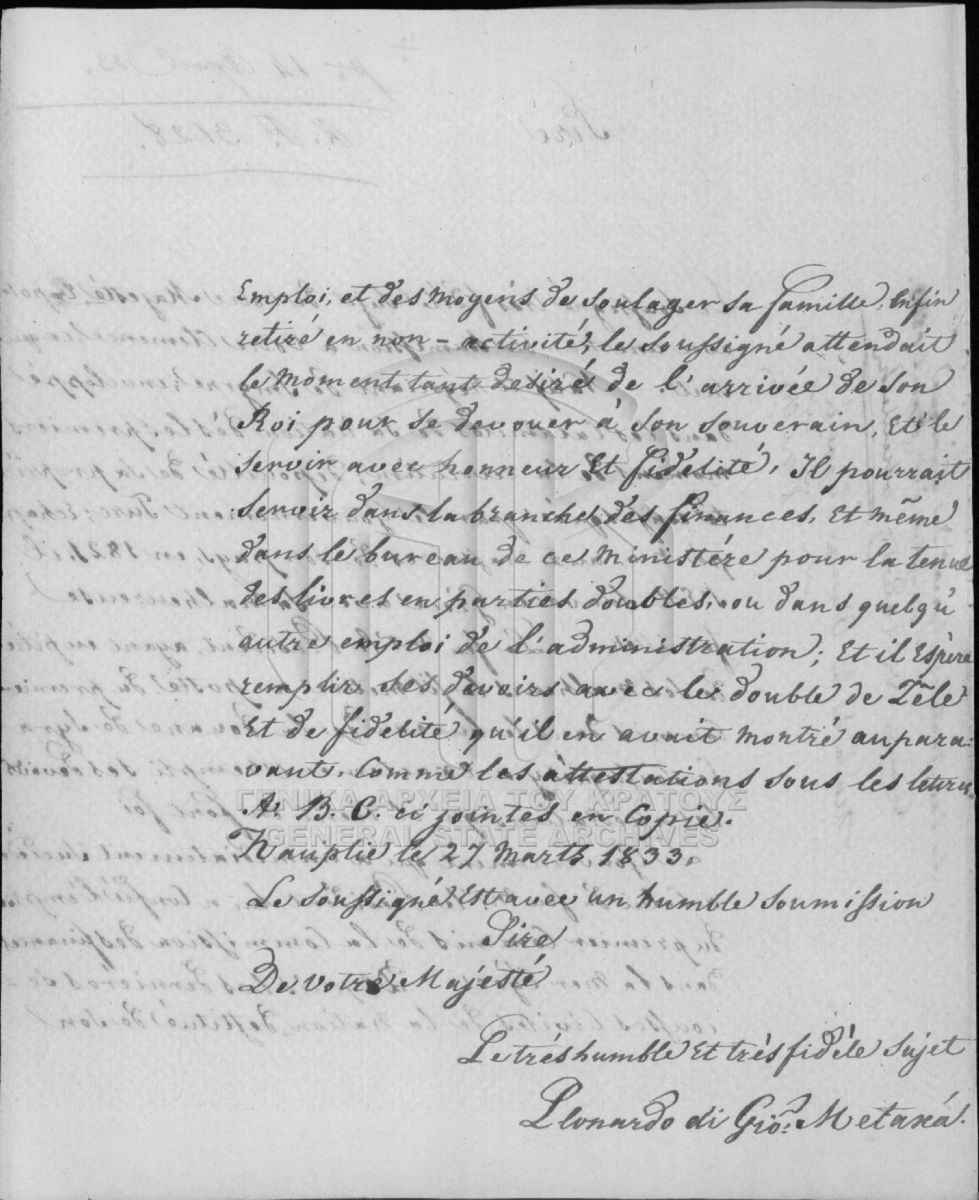 Emploi, et des moyens de soulager sa famille, Enfin
retiré en non - activité, le soussigné attendait
le moment tant desiré de l'arrivée de son
Roi pour se devouer à son souverain, Et le
servir avec honneur Et fidelité, Il pourrait
servir dans la branche des finances, Et même
dans le bureau de ce ministére pour la tenue
des livres en parties doubles, ou dans quelqu'
autre emploi de l'administration; Et il Espère
remplir ses devoirs avec le double de Zéle
Et de fidelité qu'il en avait montré aupara-
vant, Comme les attestations sous les lettres
A. B. C. ci jointes en Copie.
ΓΕΝΙΚΑ ΑΡΧΕΙΑ ΤΟΥ ΚΡΑΤΟΥΣ
GENERAL STATE ARCHIVES
Nauplie le 27 Marts 1833.
Le soussigné Est avec un humble soumission
Sire
De Votre Majesté
Le trés humble Et trés fidéle sujet
Leonardo di Gio: Metaxá.